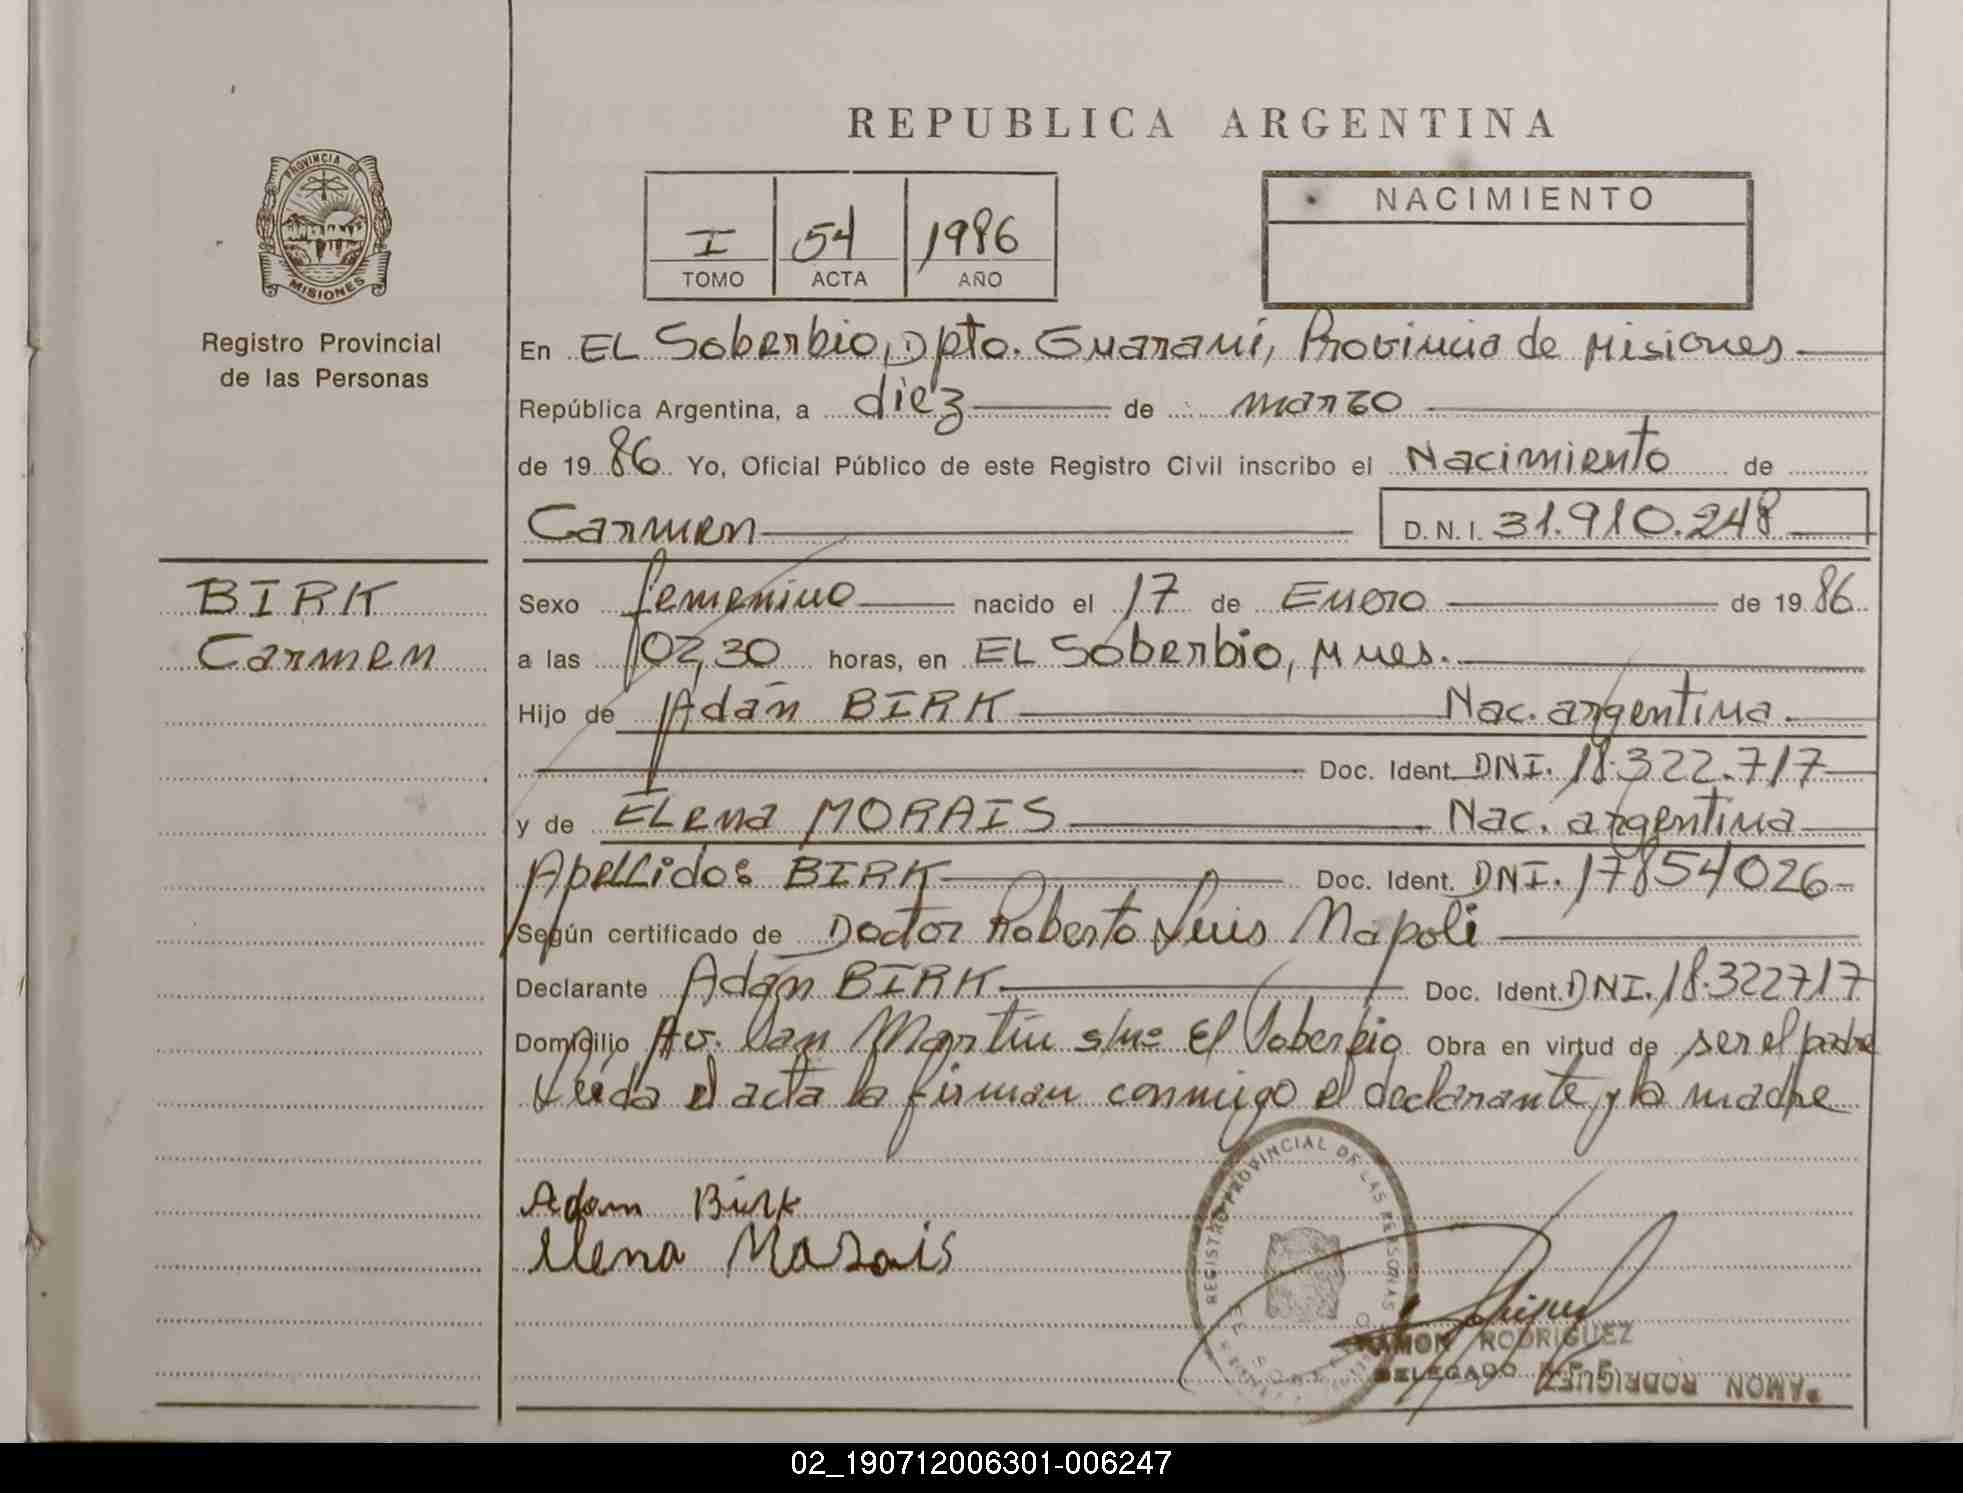 REPUBLICA ARGENTINA
PROVINCIA DE
MISIONES
Registro Provincial
de las Personas
I 54 1986
TOMO ACTA AÑO
NACIMIENTO
En EL Soberbio, Dpto. Guaraní, Provincia de Misiones
República Argentina, a diez de marzo
de 19 86 Yo, Oficial Público de este Registro Civil inscribo el Nacimiento de
Carmen D.N.I. 31.910.248
BIRK
Carmen
Sexo femenino nacido el 17 de Enero de 19 86
a las 02,30 horas, en EL Soberbio, Mnes.
Hijo de Adán BIRK Nac. argentina.
Doc. Ident. DNI. 18.322.717
y de ELena MORAIS Nac. argentina
Apellidos BIRK Doc. Ident. DNI. 17854026
Según certificado de Doctor Roberto Luis Napoli
Declarante Adán BIRK Doc. Ident. DNI. 18.322717
Domicilio Av. San Martín s/nº El Soberbio Obra en virtud de ser el padre
Leída el acta la firman conmigo el declarante y la madre
Adam Birk
Elena Morais
REGISTRO PROVINCIAL DE LAS PERSONAS
RAMON RODRIGUEZ
DELEGADO
RAMON RODRIGUEZ
02_190712006301-006247